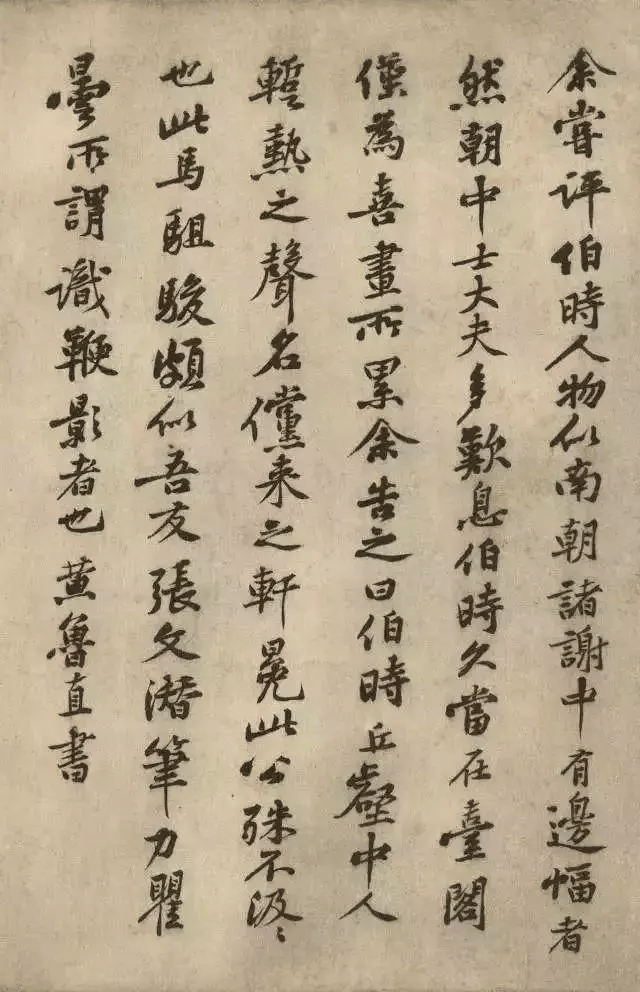 余嘗評伯時人物似南朝諸謝中有邊幅者
然朝中士大夫多歎息伯時久當在臺閣
僅為喜畫所累余告之曰伯時丘壑中人
暫熱之聲名儻来之軒冕此公殊不汲〻
也此馬駔駿頗似吾友張文潛筆力瞿
曇所謂識鞭影者也黄魯直書